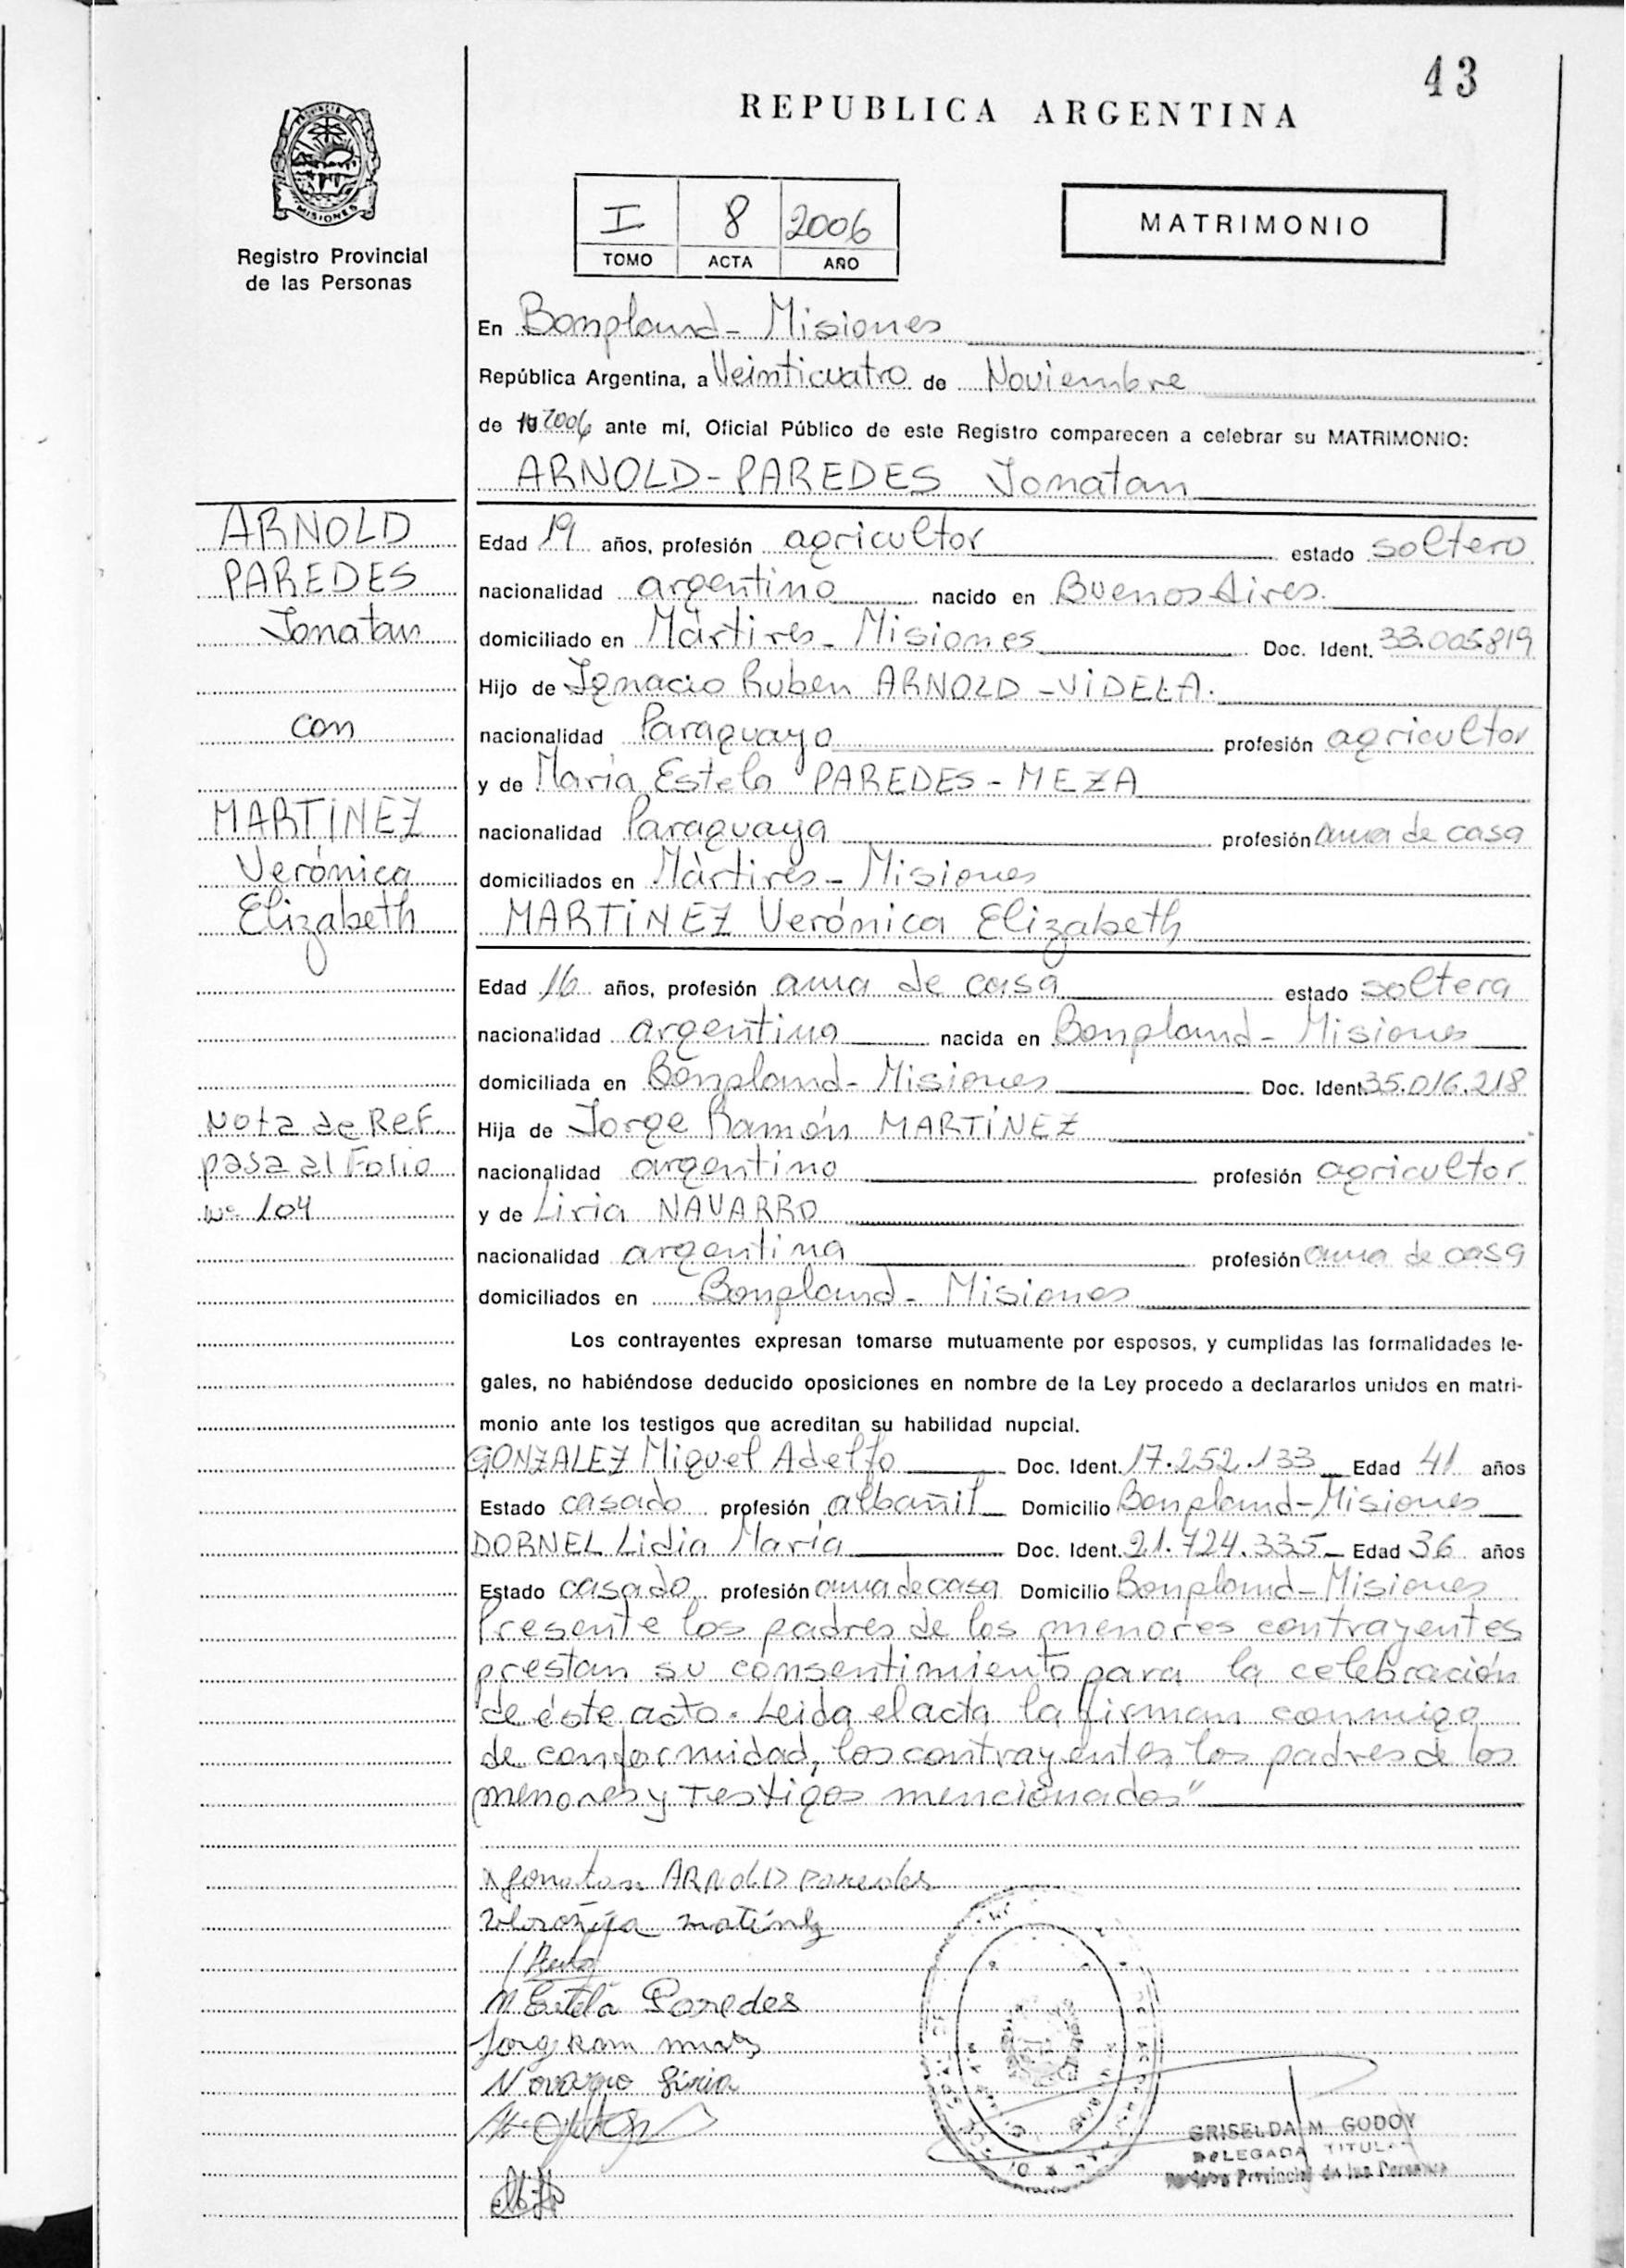 43
REPUBLICA ARGENTINA
PROVINCIA DE
MISIONES
Registro Provincial
de las Personas
I 8 2006
TOMO ACTA AÑO
MATRIMONIO
En Bompland - Misiones
República Argentina, a Veinticuatro de Noviembre
de 19 2006 ante mí, Oficial Público de este Registro comparecen a celebrar su MATRIMONIO:
ARNOLD-PAREDES Jonatan
ARNOLD
PAREDES
Jonatan
con
MARTINEZ
Verónica
Elizabeth
Nota de Ref.
pasa al Folio
Nº 104
Edad 19 años, profesión agricultor estado soltero
nacionalidad argentino nacido en Buenos Aires.
domiciliado en Mártires - Misiones Doc. Ident. 33.005.819
Hijo de Ignacio Ruben ARNOLD - VIDELA.
nacionalidad Paraguayo profesión agricultor
y de María Estela PAREDES - MEZA
nacionalidad Paraguaya profesión ama de casa
domiciliados en Mártires - Misiones
MARTINEZ Verónica Elizabeth
Edad 16 años, profesión ama de casa estado soltera
nacionalidad argentina nacida en Bonpland - Misiones
domiciliada en Bonpland - Misiones Doc. Ident. 35.016.218
Hija de Jorge Ramón MARTINEZ
nacionalidad argentino profesión agricultor.
y de Liria NAVARRO
nacionalidad argentina profesión ama de casa
domiciliados en Bonpland - Misiones
Los contrayentes expresan tomarse mutuamente por esposos, y cumplidas las formalidades le-
gales, no habiéndose deducido oposiciones en nombre de la Ley procedo a declararlos unidos en matri-
monio ante los testigos que acreditan su habilidad nupcial.
GONZALEZ Miguel Adelfo Doc. Ident. 17.252.133 Edad 41 años
Estado casado profesión albañil Domicilio Bonpland - Misiones
DORNEL Lidia María Doc. Ident. 21.724.335 Edad 36 años
Estado casado profesión ama de casa Domicilio Bonpland - Misiones
Presente los padres de los menores contrayentes
prestan su consentimiento para la celebración
de éste acto. Leida el acta la firman conmigo
de conformidad, los contrayentes, los padres de los
menores y Testigos mencionados"
Jonatan ARNOLD Paredes
Verónica
M. Estela Paredes
Navarro Liria
GRISELDA M. GODOY
DELEGADA TITULAR
Registro Provincial de las Personas